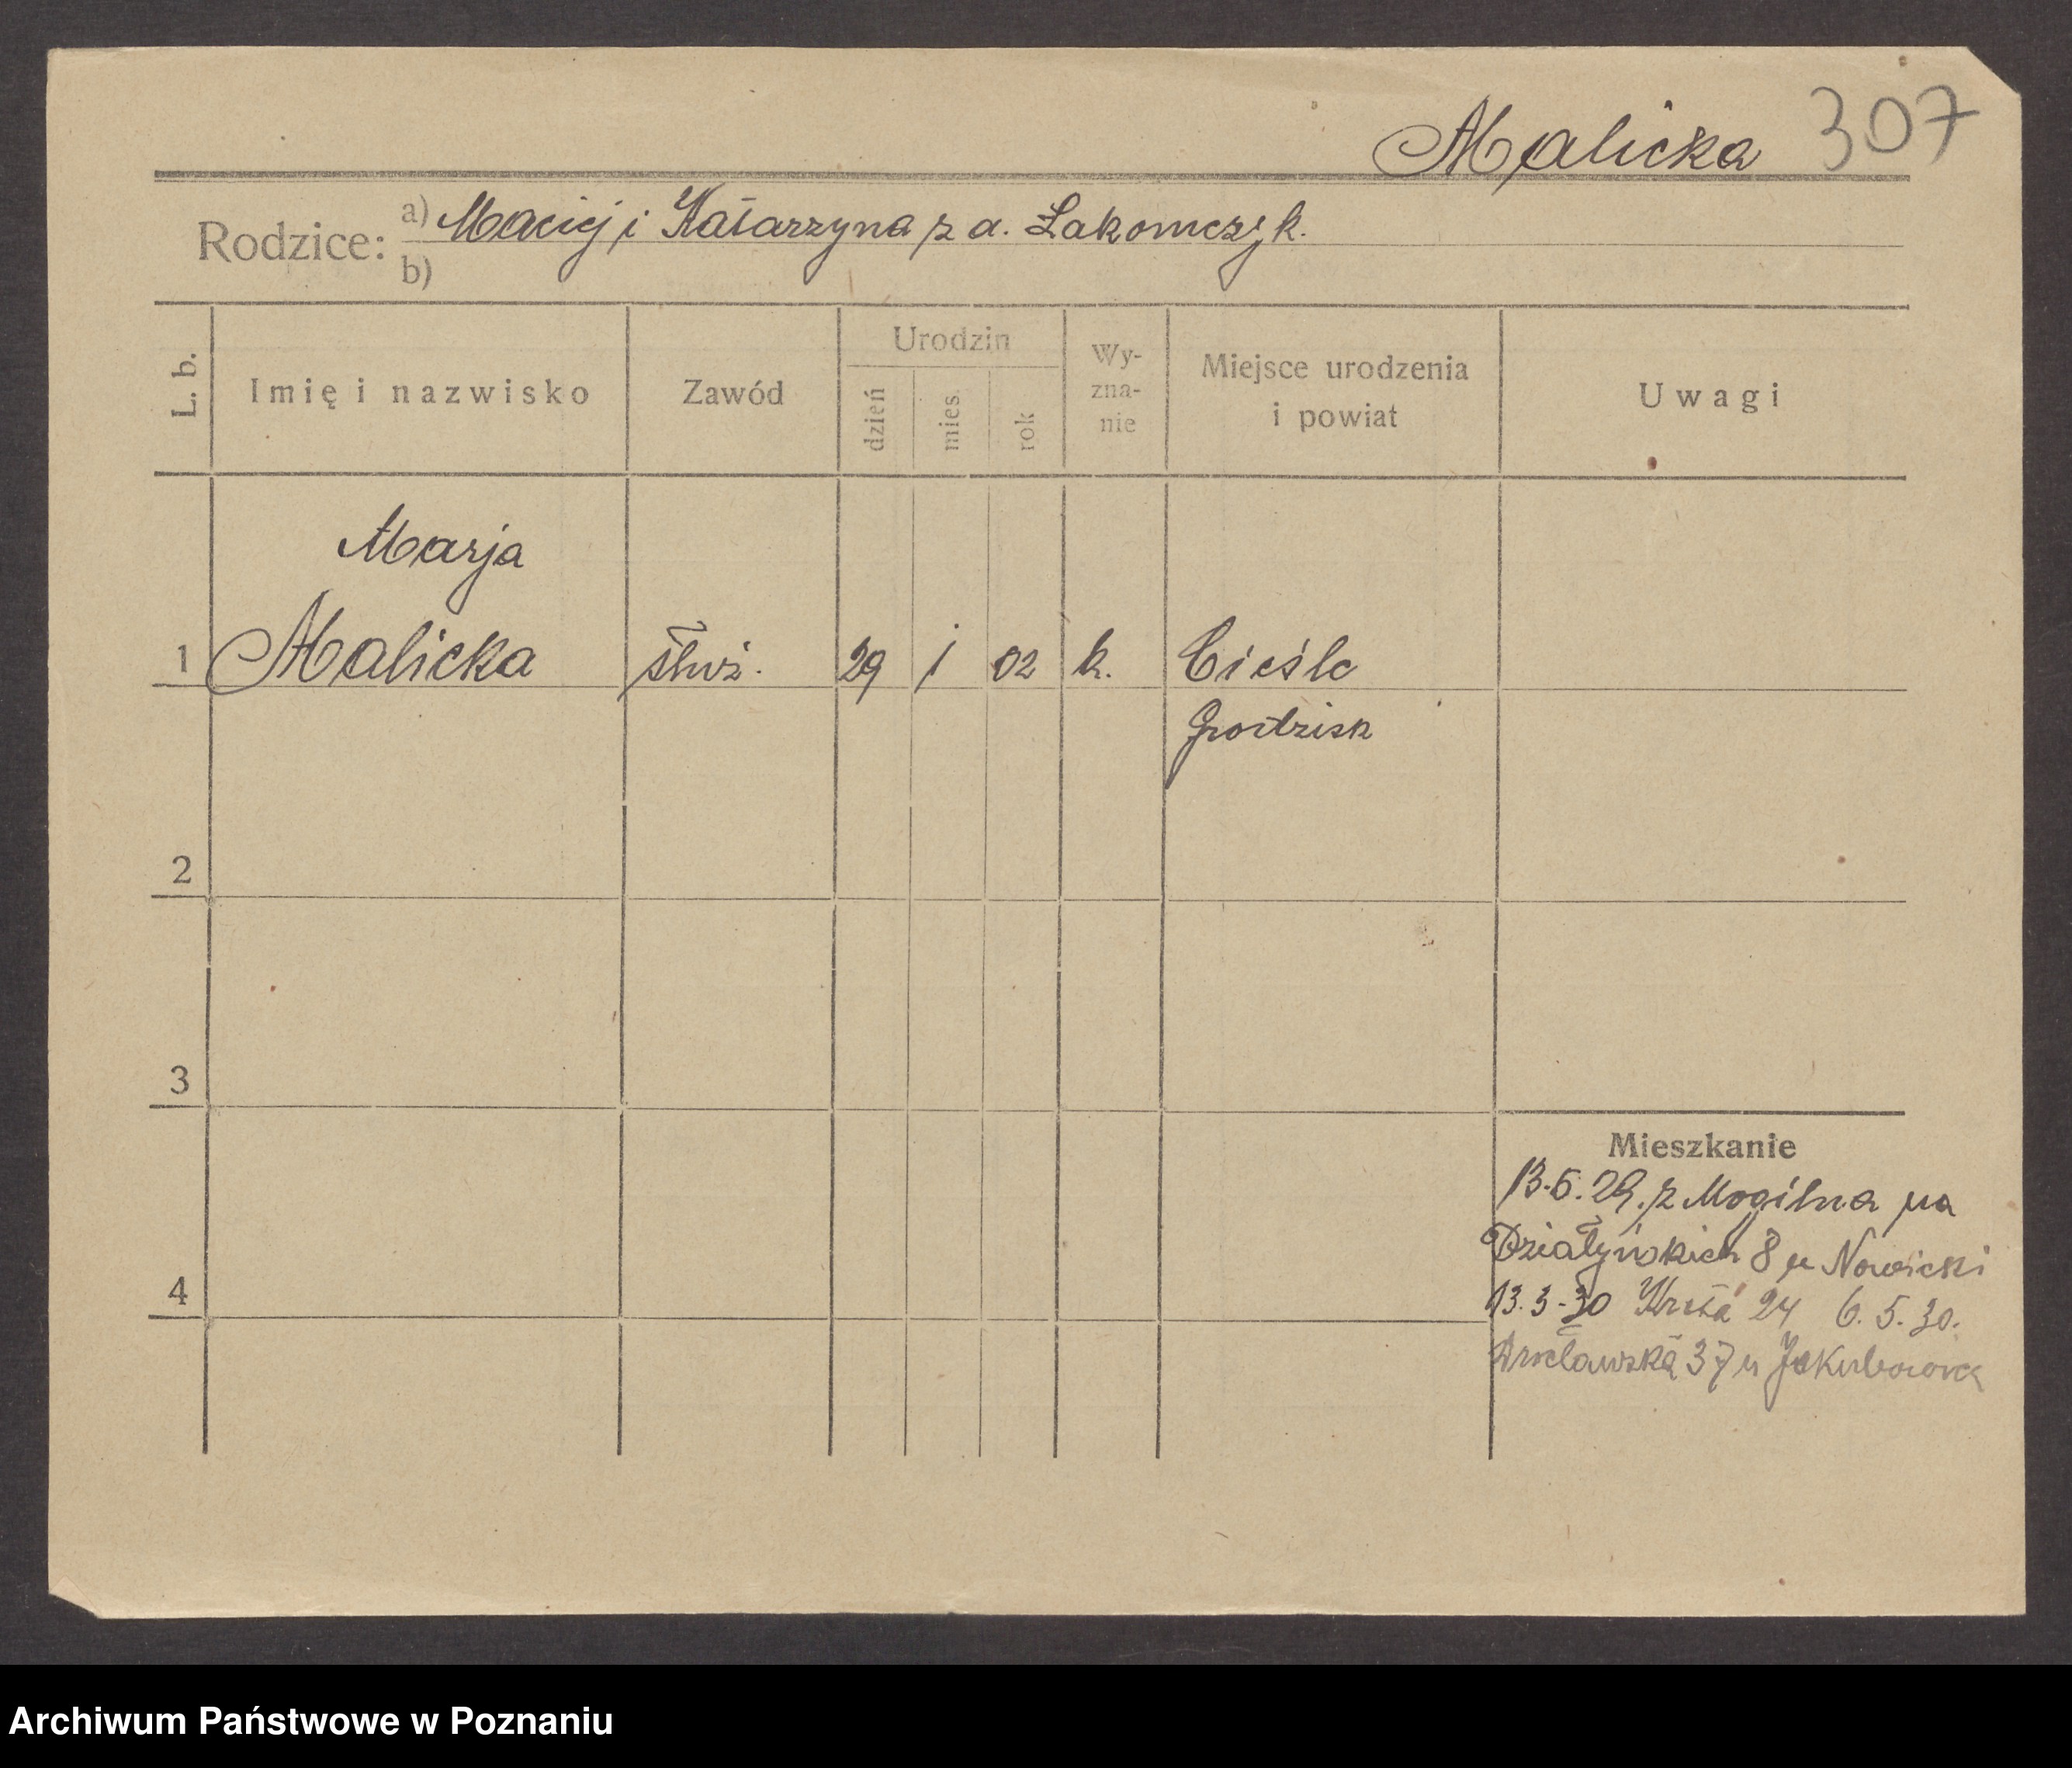 Malicka 307
Rodzice: a) Maciej i Katarzyna z d. Łakomczyk.
b)
L. b. Imię i nazwisko Zawód Urodzin dzień mies. rok Wy-zna-nie Miejsce urodzenia i powiat Uwagi
Marja
1 Malicka służ. 29 1 02 k. Cieśle
Grodzisk
2
3
Mieszkanie
13.6.29. z Mogilna na
Działyńskich 8 u Nowicki
4 13.3.30 Kręta 24 6.5.30.
Wrocławska 37 u
Archiwum Państwowe w Poznaniu